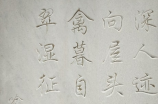 深人迹
向 头
禽暮自
翠湿征